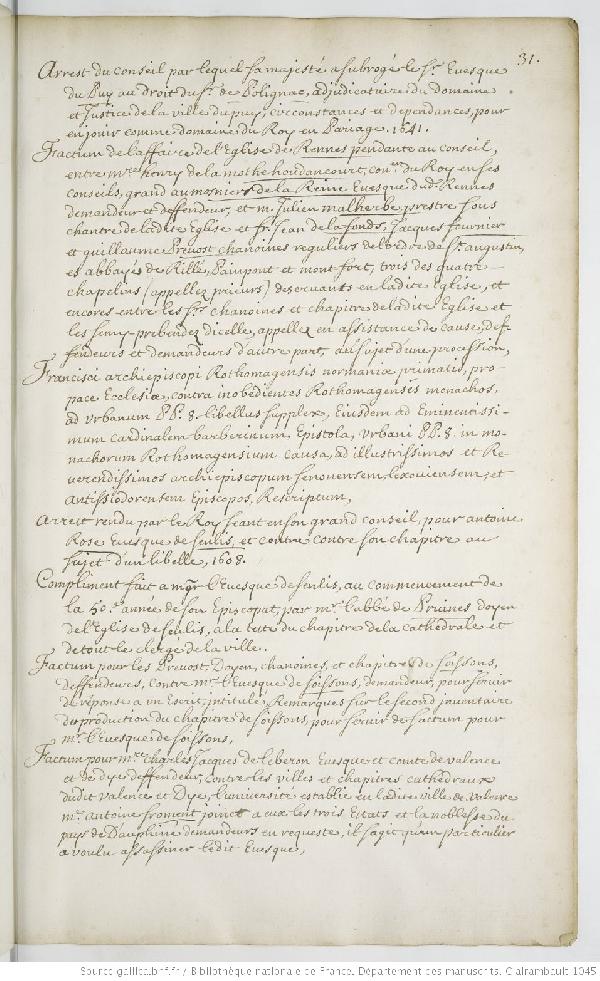 31.
Arrest du conseil par lequel sa majesté a subrogé le Sr. Evesque
du Puy au droit du Sr. de Polignac, adjudicataire du domaine
et Justice de la ville du puy, circonstances et dependances, pour
en jouir comme domaine du Roy en Pariage. 1641.
Factum de l'affaire de l'Eglise de Rennes pendante au conseil,
entre mre. henry de la mothe houdancourt, coner. du Roy en ses
conseils, grand aumosnier de la Reine Evesque dud. Rennes
demandeur et deffendeur, et m. Julien malherbe, prestre sous
chantre de ladite Eglise et fr. Jean de la fonds, Jacques fournier
et guillaume Prevost chanoines reguliers de l'ordre de St. augustin,
es abbayes de Rillé, Painpont et montfort, trois des quatre
chapelins (appellez prieurs) deservants en ladite Eglise, et
encores entre les Srs. chanoines et chapitre de ladite Eglise et
les semy-prebendez d'icelle, appellez en assistance de cause, def-
fendeurs et demandeurs d'autre part, au sujet d'une procession,
Francisci archiepiscopi Rothomagensis normaniæ primatis, pro
pace Ecclesiæ, contra inobedientes Rothomagensis monachos,
ad Urbanum PP. 8. libellus supplex, Eiusdem ad Eminentissi-
mum cardinalem barberinum Epistola, Urbani PP. 8. in mo-
nachorum Rothomagensium causa, ad illustrissimos et Re-
verendissimos archiepiscopum senonensem, lexouiensem, et
antissiodorensem Episcopos, Rescriptum,
Arrest rendu par le Roy seant en son grand conseil, pour antoine
Rose Evesque de senlis, et contre contre son chapitre au
sujet d'un libelle, 1608.
Compliment fait a mgr. l'Evesque de senlis, au commencement de
la 50e. année de son Episcopat, par mr. l'abbé de Prüines doyen
de l'Eglise de senlis, a la teste du chapitre de la cathedrale et
de tout le clergé de la ville.
Factum pour les Prevost, Doyen, chanoines, et chapitre de soissons,
deffendeurs, contre mr. l'Evesque de soissons, demandeur, pour servir
de réponse a un Escrit, intitulé, Remarques sur le second inventaire
de production du chapitre de soissons, pour servir de factum pour
mr. l'Evesque de soissons,
Factum pour mre. charles Jacques de leberon Evesque et comte de valence
et de Dye deffendeur, contre les villes et chapitres cathedraux
dudit valence et Dye, l'université establie en ladite ville de valence
me. antoine froment joinct a eux les trois Estats et la noblesse du
pays de Dauphiné demandeurs en requeste, il s'agit qu'un particulier
a voulu assassiner ledit Evesque,
Source gallica.bnf.fr / Bibliothèque nationale de France. Département des manuscrits. Clairambault 1045